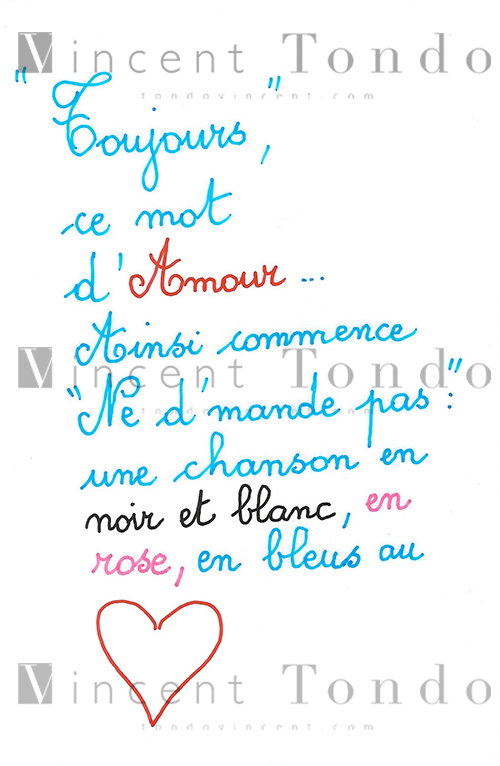 Vincent Tondo
tondovincent.com
"Toujours",
ce mot
d'Amour...
Ainsi commence
Vincent Tondo
tondovincent.com
"Ne d'mande pas":
une chanson en
noir et blanc, en
rose, en bleus au
Vincent Tondo
tondovincent.com